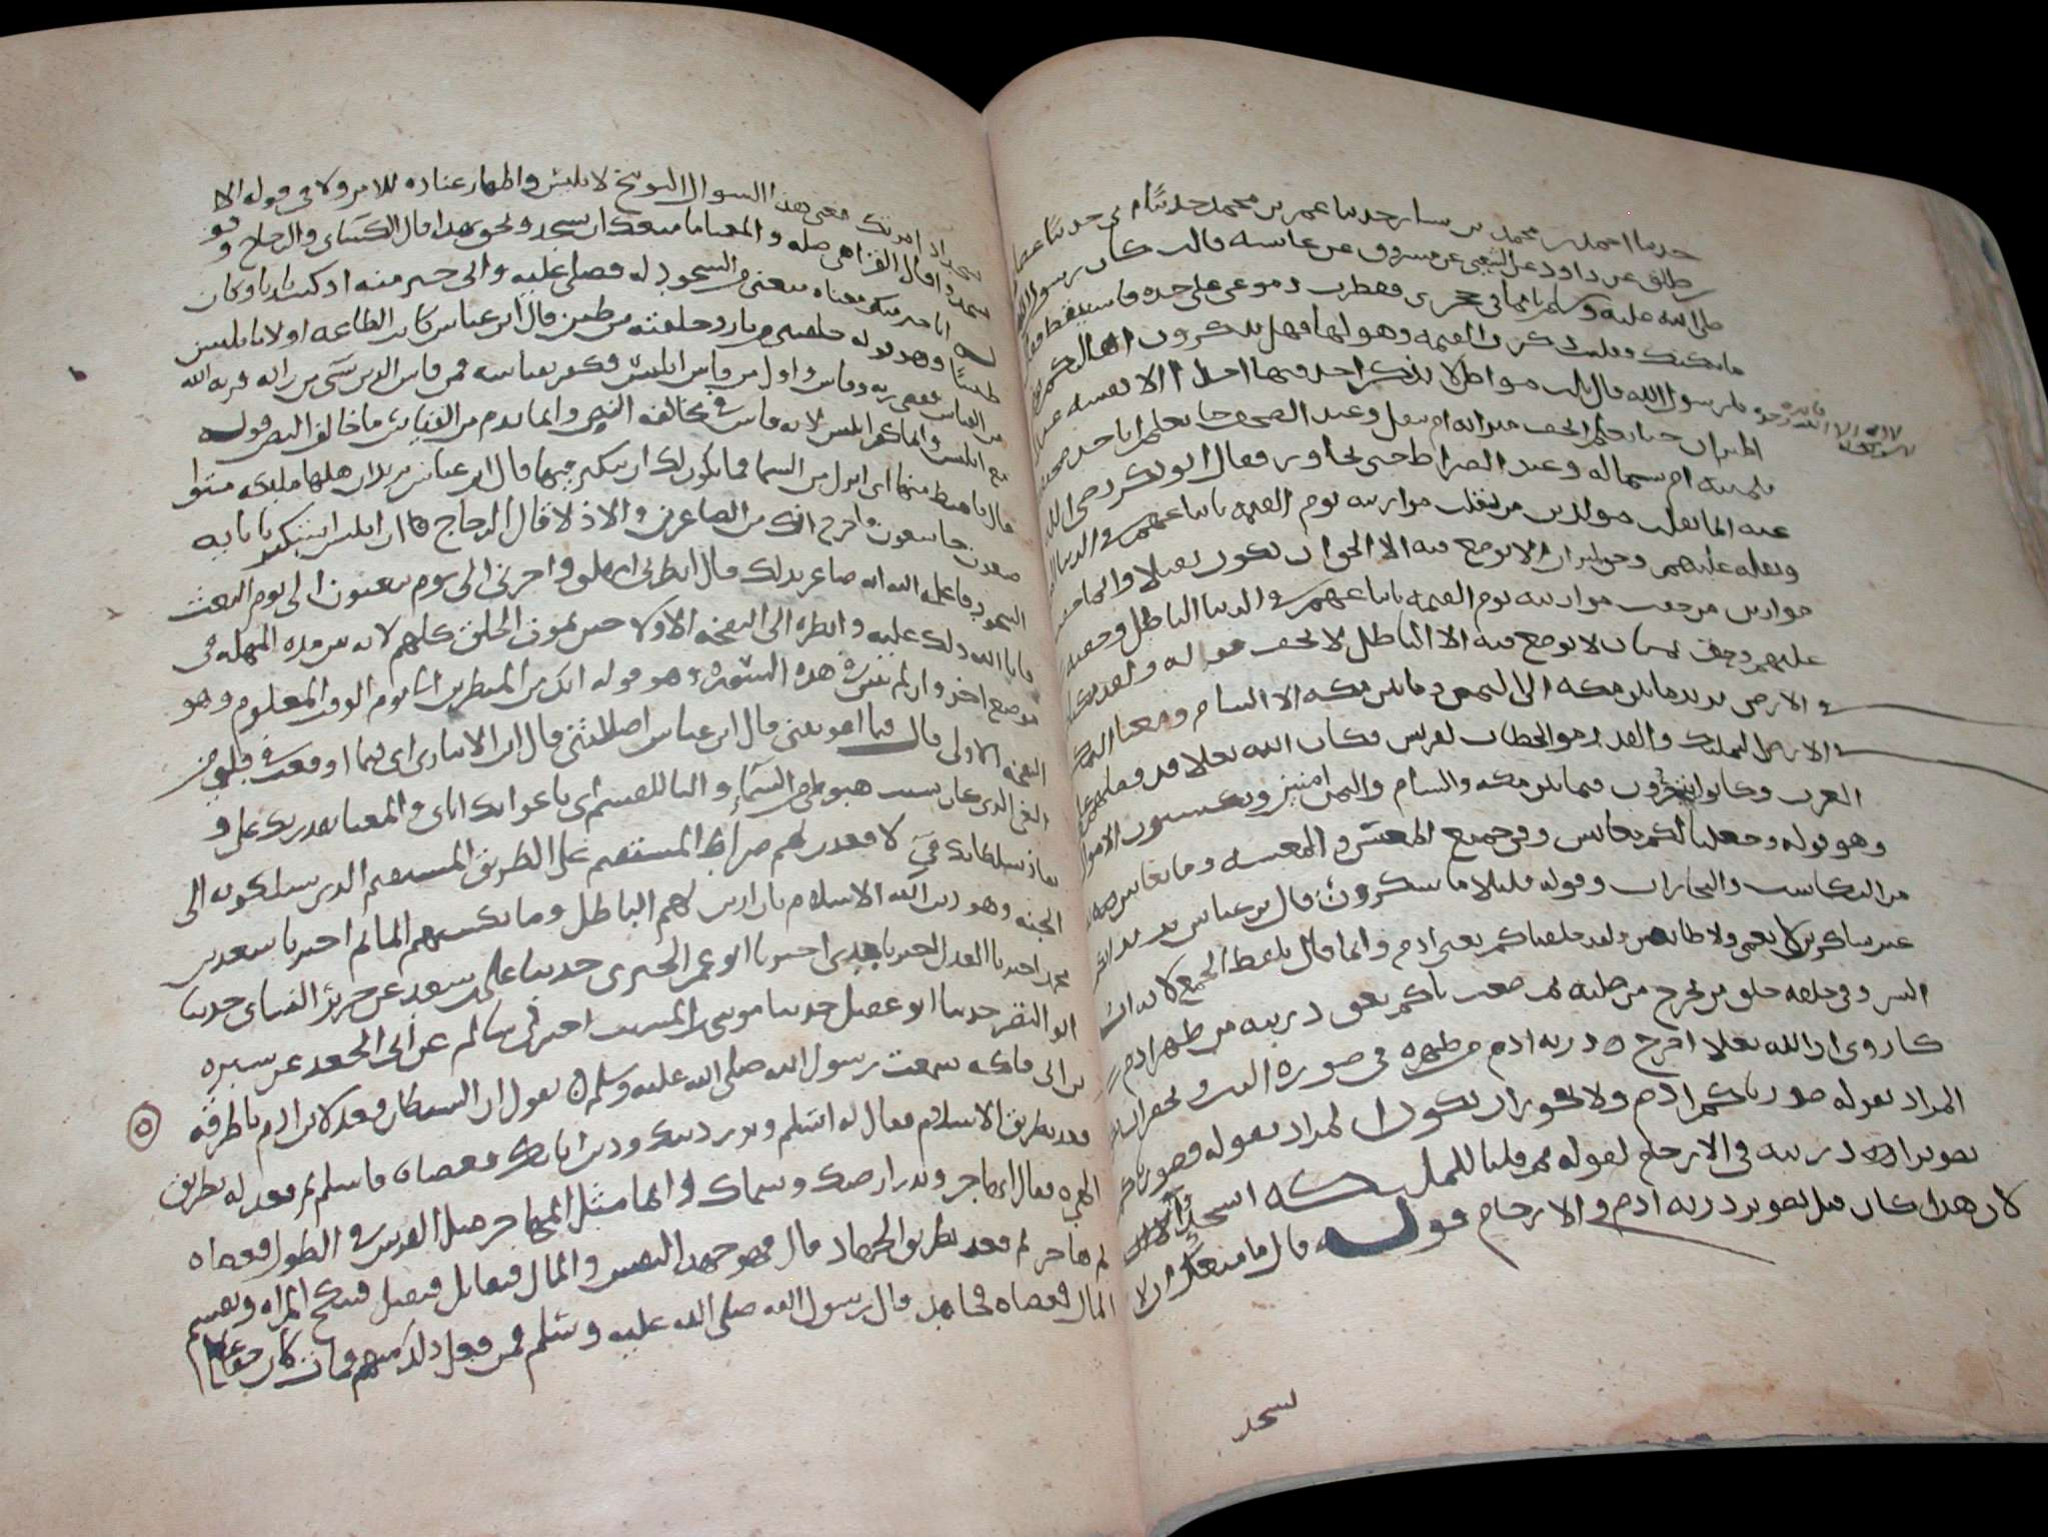 حدثنا احمد بن محمد بن يسار حدثنا عمر بن محمد حدثنا
طلق عن داود عن الشعبي عن مسروق عن عائشة قالت كان رسول الله
صلى الله عليه وسلم نائما في حجري فقطرت دموعي على خده فاستيقظ فقال
ما يبكيك فقلت ذكرت القيمه وهولها فهل تذكرون اهاليكم
يا رسول الله قال ثلث مواطن لا يذكر احد فيها احدا الا نفسه عند
الميزان حتى يعلم ايخف ميزانه ام يثقل وعند الصحف حتى يعلم ايأخذ صحيفته
بيمينه ام بشماله وعند الصراط حتى يجاوز فقال ابو بكر رضي الله
عنه انما ثقلت موازين من ثقلت موازينه يوم القيمه باتباعهم في الدنيا الحق
وثقله عليهم وحق لميزان لا يوضع فيه الا الحق ان يكون ثقيلا وانما خفت
موازين من خفت موازينه يوم القيمه باتباعهم في الدنيا الباطل وخفته
عليهم وحق لميزان لا يوضع فيه الا الباطل ان يخف قوله ولقد مكناكم
في الارض يريد ما بين مكه الى اليمن وما بين مكه الى الشام ومعنا التمكين
في الارض التمليك والقدره والخطاب لقريش فكان الله تعالى قد فعل بهم
العرب وكانوا يتجرون فيما بين مكه والشام واليمن امنين ويكسبون الاموال
وهو قوله وجعلنا لكم فيها معايش وهي جميع المعيشه وما يعاش به
من المكاسب والتجارات وقوله قليلا ما تشكرون قال ابن عباس يريد انكم
غير شاكرين لانعمي ولا طائعين ولقد خلقناكم يعني ادم وانما قال بلفظ الجمع لانه ابو
البشر وفي خلقه خلق من يخرج من صلبه ثم صورناكم يعني ذريته من ظهر ادم
كما روي ان الله تعالى اخرج ذريه ادم من ظهره في صوره الذر
المراد بقوله صورناكم ادم ولا يجوز ان يكون المراد بقوله صورناكم
تصوير ذريته في الارحام لقوله ثم قلنا للملئكه اسجدوا لادم
لان هذا كان قبل تصوير ذريه ادم في الارحام قوله قال ما منعك ان لا
تسجد
تسجد اذ امرتك معنى هذا السوال التوبيخ لابليس واظهار عناده للامر ولا في قوله الا
تسجد قال الفراء هي صله والمعنا ما منعك ان تسجد ونحو هذا قال الكسائي والزجاج
انا خير منه معناه منعني من السجود له فضلي عليه واني خير منه اذ كنت ناريا وكان
طينيا وهو قوله خلقتني من نار وخلقته من طين قال ابن عباس كانت الطاعه اولى بابليس
من القياس فعصى ربه وقاس واول من قاس ابليس فكفر بقياسه فمن قاس الدين بشي من رايه قرنه الله
مع ابليس وانما كفر ابليس لانه قاس في مخالفه النص وانما يذم من القياس ما خالف النص قوله
قال فاهبط منها اي انزل من السما فما يكون لك ان تتكبر فيها قال ابن عباس يريد ان اهلها ملائكه متواضعون
خاشعون فاخرج انك من الصاغرين والاذلا قال الزجاج ان ابليس استكبر بابايه
السجود فاعلمه الله انه صاغر بذلك قال انظرني امهلني واخرني الى يوم يبعثون الى يوم البعث
فابا الله ذلك عليه وانظره الى النفخه الاولى حين يموت الخلق كلهم لانه بين مده المهله في
موضع اخر وان لم يبين في هذه السوره وهو قوله انك من المنظرين الى يوم الوقت المعلوم وهو
النفخه الاولى قال فبما اغويتني قال ابن عباس اضللتني قال ابن الانباري اي فبما اوقعت في قلبي من
الغي الذي كان سبب هبوطي من السما والبا للقسم اي باغوائك اياي والمعنا بقدرتك علي و
نفاذ سلطانك في لاقعدن لهم صراطك المستقيم على الطريق المستقيم الذي يسلكونه الى
الجنه وهو دين الله الاسلام بان ازين لهم الباطل وما يكسبهم الماثم اخبرنا سعد بن
محمد اخبرنا العدل اخبرنا جدي اخبرنا ابو عمر الحيري حدثنا علي بن سعيد عن جرير النسائي حدثنا
ابو النضر حدثنا ابو عقيل حدثنا موسى بن المسيب اخبرني سالم عن ابي الجعد عن سبره
بن ابي فاكه سمعت رسول الله صلى الله عليه وسلم يقول ان الشيطان قعد لابن ادم باطرقه
قعد بطريق الاسلام فقال له اتسلم وتذر دينك ودين ابائك فعصاه فاسلم ثم قعد له بطريق
الهجره فقال اتهاجر وتذر ارضك وسماك وانما مثل المهاجر مثل الفرس في الطول فعصاه
ثم هاجر ثم قعد بطريق الجهاد قال فهو جهد النفس والمال فتقاتل فتقتل فتنكح المراه ويقسم
المال فعصاه فجاهد قال رسول الله صلى الله عليه وسلم فمن فعل ذلك منهم فمات كان حقا على